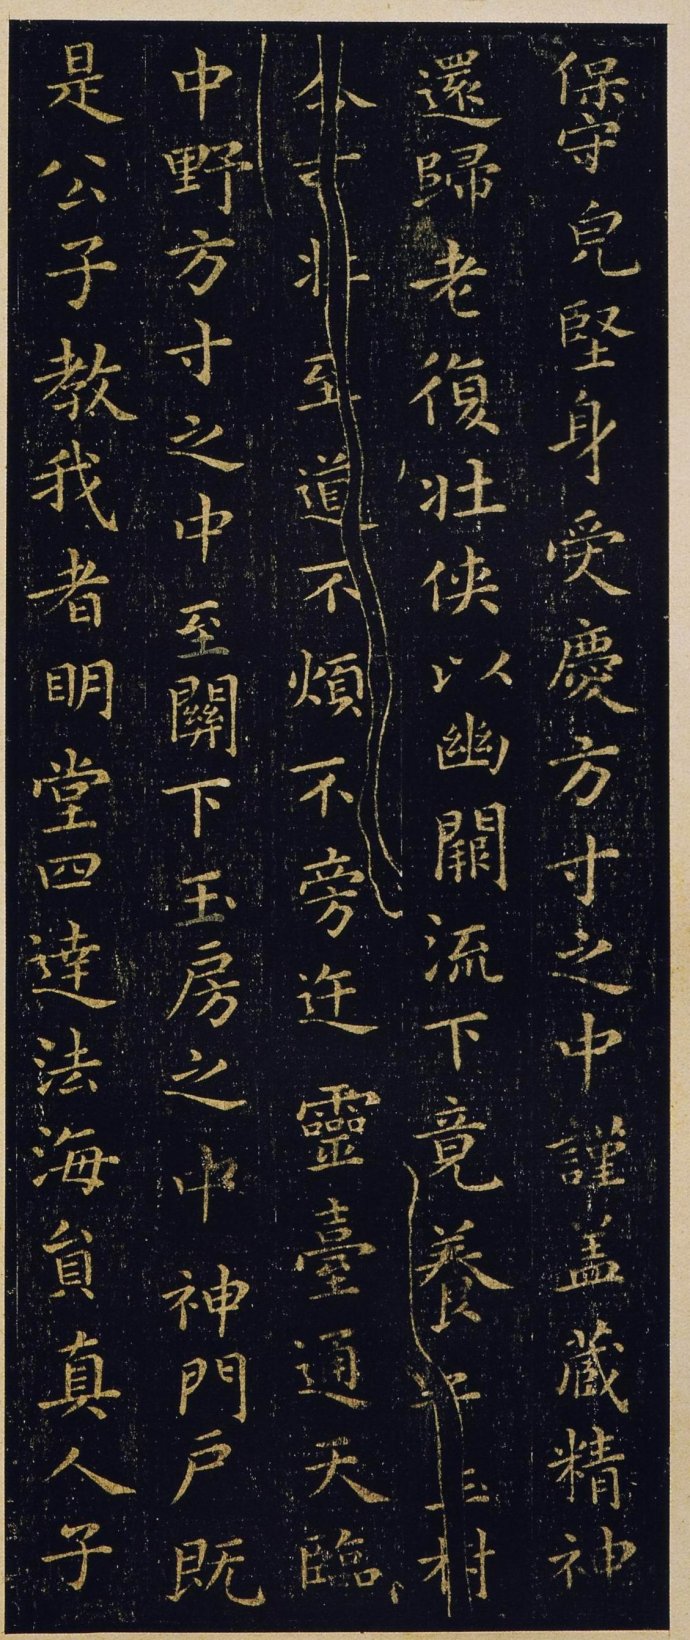 保守皃堅身受慶方寸之中謹盖藏精神
還歸老復壯俠以幽闕流下竟養子玉村
令可壯至道不煩不旁迕靈臺通天臨
中野方寸之中至關下玉房之中神門戶既
是公子教我者明堂四達法海員真人子